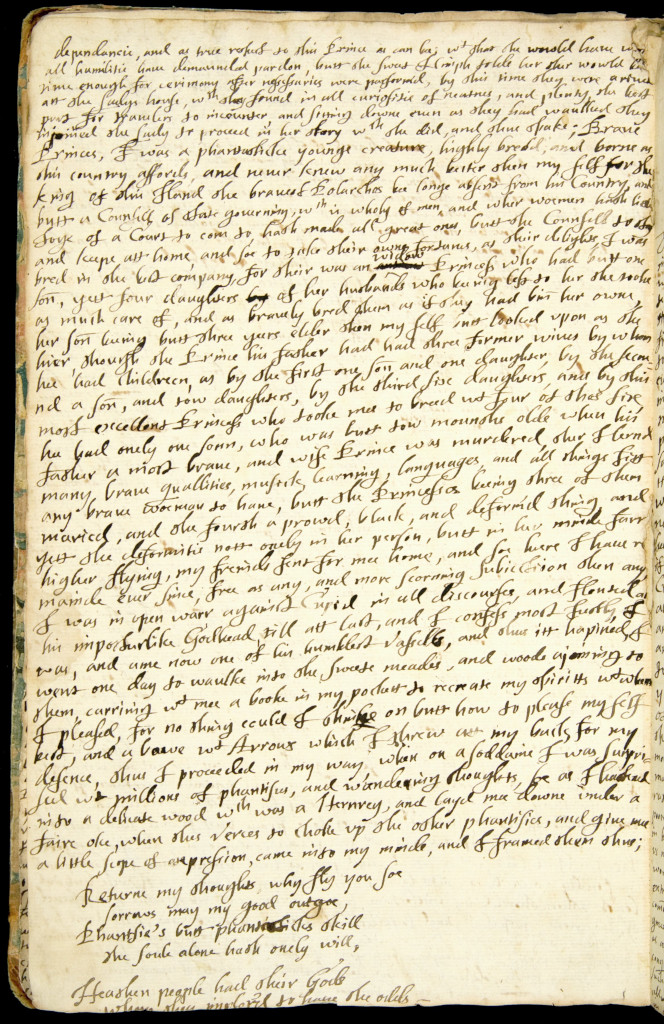 dependancie, and as true respect to this Prince as can bee; wt that she would have wt
all humilitie have demaunded pardon, butt the sweet Nimph tolde her ther would bee
time enough for cerimony after nessessaries were performed, by this time they were arived
att the ladys house, wch they found in all curiositie of neatnes, and plenty, the best
port for travelers to incounter, and sitting downe even as they had waulked they
injoined the lady to proceed in her story wch she did, and thus spake; Brave
Princes, I was a phantasticke younge creature, highly breed, and borne as
this country affords, and never knew any much better then my self for the
King of this Iland the braves Polarchos be longe absent from his Country, and
butt a Counsell of state governing, wch is wholy of men, and wher woemen hath little
of a Court to com to hath made all great ones, butt the Counsell to stay
and keepe att home and soe to take their owne fortuns, as their delights, I was
bred in the best company, for their was an widow Princess who had butt one
son, yett four daughters of her husbands who being left to her she tooke
as much care of, and as bravely bred them as if they had bin her owne,
her son being butt three yeers elder then my self nott looked upon as the
hier, though the Prince his father had had three former wives by whom
hee had childreen, as by the first one son, and one daughter, by the secon
nd a son, and tow daughters, by the third five daughters, and by this
most excellent Princess who tooke mee to breed wt four of thes five,
he had onely one sonn, who was butt tow mounthe olde when his
father a most brave, and wise Prince was murdered, ther I lernd
many brave quallities, musick, learning, languages, and all things fitt
any brave woeman to have, butt the Princesses beeing three of them
maried, and the fourth a prowd, black, and deformd thing and
yett the deformitie nott onely in her person, butt in her minde farr
higher flying, my freinds sent for mee home, and soe heere I have re
mainde ever since, free as any, and more scorning subjection then any
I was in open warr against Cupid in all discourses, and flouted att
his imposturlike Godhead till att last, and I confess most justly, I
was, and ame now one of his humblest vassells, and thus itt hapined, I
went one day to waulke into the sweete meades, and woods ajoining to
them, carriing wt mee a booke in my pockett to recreate my spiritts wt when
I pleased, for no thing could I thinke on butt how to please my self
best, and a bowe wt Arrows which I threw att my back for my
defence, thus I proceeded in my way when on a soddaine I was surpri
sed wt millions of phantisies, and wandering thoughts, soe as I hasted
into a delicate wood wch was a lternrey, and layd mee downe under a
faire oke, when thes verces to choke up the other phantisies, and give mee
a little scope of expression, came into my minde, and I framed them thus;
Returne my thoughts, why fly you soe
sorrows may my good outgoe,
Phantsie's butt phantasticks skill
the soule alone hath onely will;
Heathen people had their Gods
Whom they implor'd to have the odds